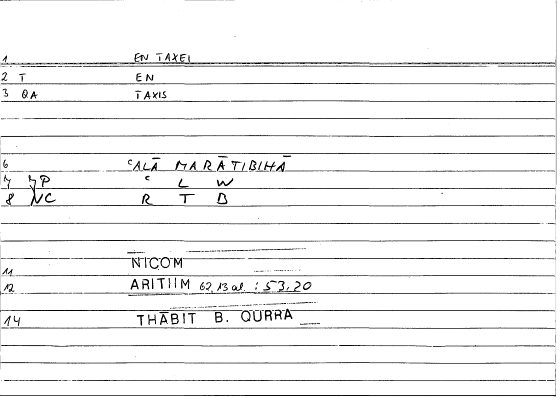 1 EN TAXEI
2 T EN
3 QA TAXIS
6 ʿALĀ MARĀTIBIHĀ
7 MP ʿ L W
8 NC R T B
11 NICOM
12 ARITIIM 62,13 al. : 53,20
14 THĀBIT B. QURRA